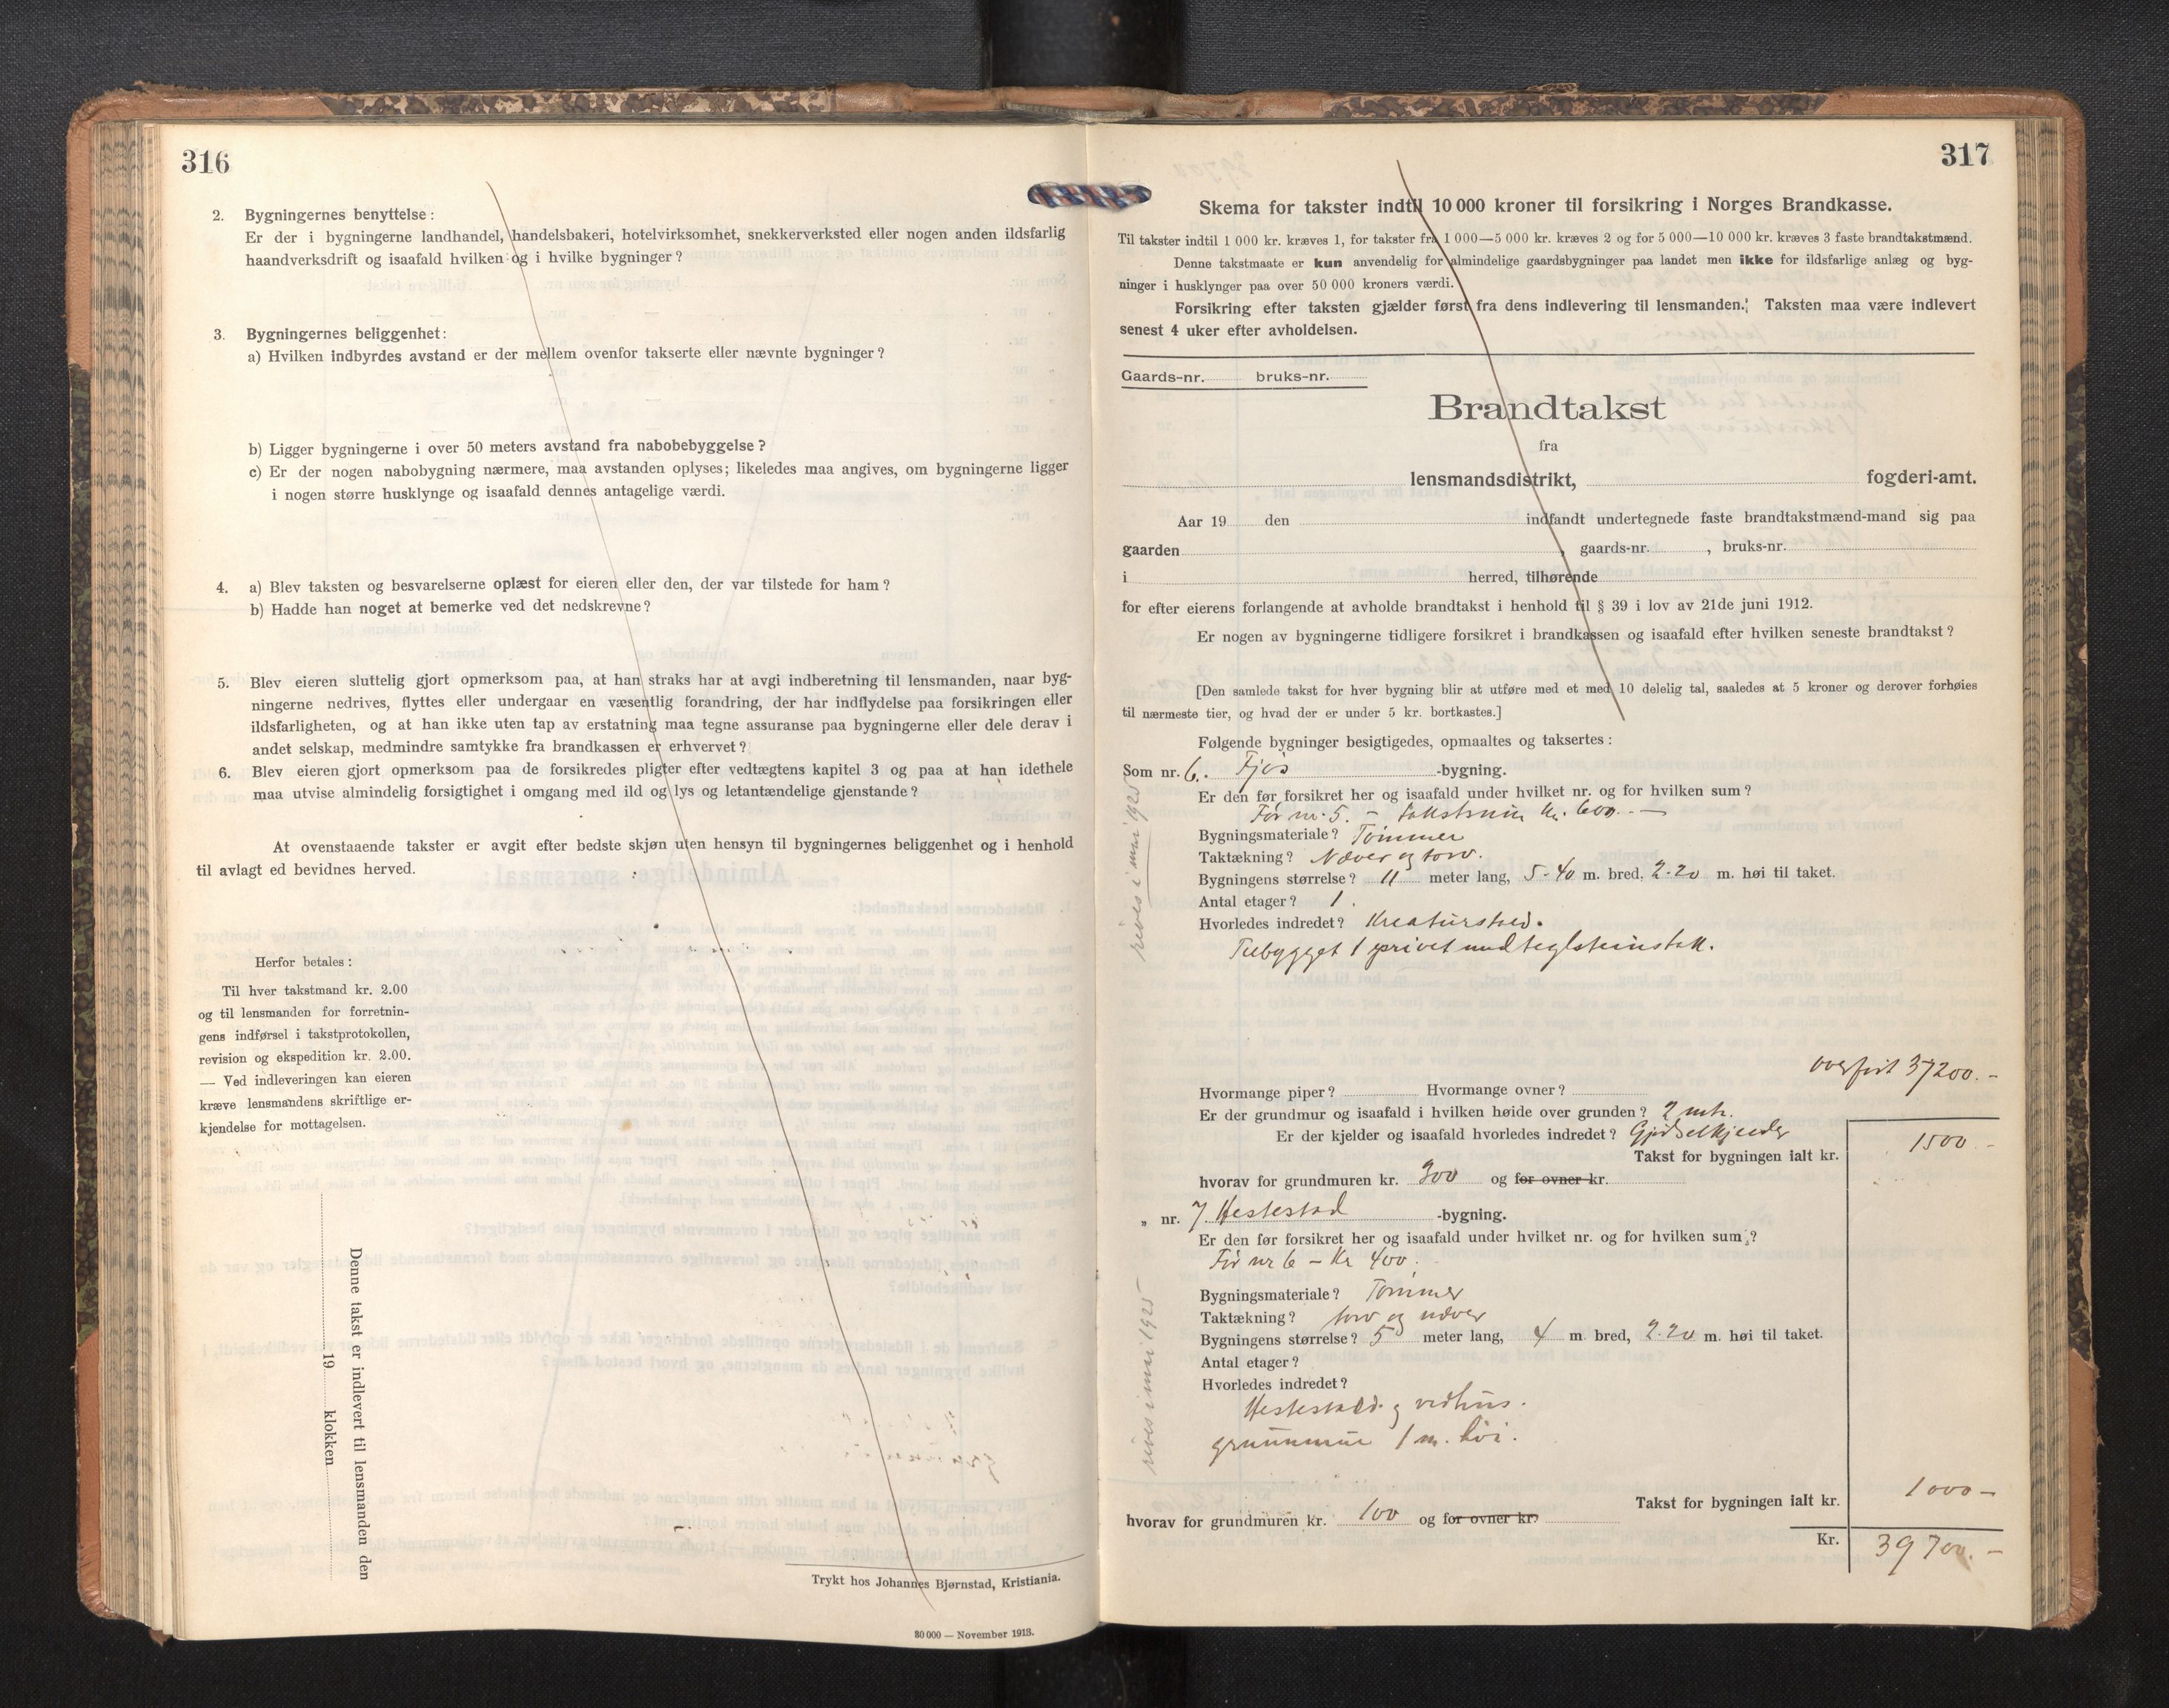 316
2. Bygningernes benyttelse:
Er der i bygningerne landhandel, handelsbakeri, hotelvirksomhet, snekkerverksted eller nogen anden ildsfarlig
haandverksdrift og isaafald hvilken og i hvilke bygninger?
3. Bygningernes beliggenhet:
a) Hvilken indbyrdes avstand er der mellem ovenfor takserte eller nævnte bygninger?
b) Ligger bygningerne i over 50 meters avstand fra nabobebyggelse?
c) Er der nogen nabobygning nærmere, maa avstanden oplyses; likeledes maa angives, om bygningerne ligger
i nogen større husklynge og isaafald dennes antagelige værdi.
4. a) Blev taksten og besvarelserne oplæst for eieren eller den, der var tilstede for ham?
b) Hadde han noget at bemerke ved det nedskrevne?
5. Blev eieren sluttelig gjort opmerksom paa, at han straks har at avgi indberetning til lensmanden, naar byg-
ningerne nedrives, flyttes eller undergaar en væsentlig forandring, der har indflydelse paa forsikringen eller
ildsfarligheten, og at han ikke uten tap av erstatning maa tegne assuranse paa bygningerne eller dele derav i
andet selskap, medmindre samtykke fra brandkassen er erhvervet?
6. Blev eieren gjort opmerksom paa de forsikredes pligter efter vedtægtens kapitel 3 og paa at han idethele
maa utvise almindelig forsigtighet i omgang med ild og lys og letantændelige gjenstande?
At ovenstaaende takster er avgit efter bedste skjøn uten hensyn til bygningernes beliggenhet og i henhold
til avlagt ed bevidnes herved.
Herfor betales:
Til hver takstmand kr. 2.00
og til lensmanden for forretnin-
gens indførsel i takstprotokollen,
revision og ekspedition kr. 2.00.
— Ved indleveringen kan eieren
kræve lensmandens skriftlige er-
kjendelse for mottagelsen.
Denne takst er indlevert til lensmanden den
19 klokken
Trykt hos Johannes Bjørnstad, Kristiania.
30 000 — November 1913.
317
Skema for takster indtil 10 000 kroner til forsikring i Norges Brandkasse.
Til takster indtil 1 000 kr. kræves 1, for takster fra 1 000—5 000 kr. kræves 2 og for 5 000—10 000 kr. kræves 3 faste brandtakstmænd.
Denne takstmaate er kun anvendelig for almindelige gaardsbygninger paa landet men ikke for ildsfarlige anlæg og byg-
ninger i husklynger paa over 50 000 kroners værdi.
Forsikring efter taksten gjælder først fra dens indlevering til lensmanden. Taksten maa være indlevert
senest 4 uker efter avholdelsen.
Gaards-nr. bruks-nr.
Brandtakst
fra
lensmandsdistrikt, fogderi-amt.
Aar 19 den indfandt undertegnede faste brandtakstmænd-mand sig paa
gaarden , gaards-nr. , bruks-nr.
i herred, tilhørende
for efter eierens forlangende at avholde brandtakst i henhold til § 39 i lov av 21de juni 1912.
Er nogen av bygningerne tidligere forsikret i brandkassen og isaafald efter hvilken seneste brandtakst?
[Den samlede takst for hver bygning blir at utføre med et med 10 delelig tal, saaledes at 5 kroner og derover forhøies
til nærmeste tier, og hvad der er under 5 kr. bortkastes.]
Følgende bygninger besigtigedes, opmaaltes og taksertes:
Som nr. 6. Fjøs -bygning.
Er den før forsikret her og isaafald under hvilket nr. og for hvilken sum?
Før nr. 5. – takstsum kr. 600. –
Bygningsmateriale? Tømmer
Taktækning? Næver og torv.
Bygningens størrelse? 11 meter lang, 5-40 m. bred, 2-20 m. høi til taket.
Antal etager? 1.
Hvorledes indredet? Kreatursted.
Tilbygget 1 privet med teglsteinstak.
rives i mai 1925
overført 37200. –
Hvormange piper? Hvormange ovner?
Er der grundmur og isaafald i hvilken høide over grunden? 2 mtr.
Er der kjelder og isaafald hvorledes indredet? Gjødselkjelder
Takst for bygningen ialt kr. 1500 –
hvorav for grundmuren kr. 300 og for ovner kr.
" nr. 7. Hestestad -bygning.
Er den før forsikret her og isaafald under hvilket nr. og for hvilken sum?
Før nr 6 – Kr 400.
Bygningsmateriale? Tømmer
Taktækning? torv og næver
Bygningens størrelse? 5 meter lang, 4 m. bred, 2-20 m. høi til taket.
Antal etager?
Hvorledes indredet?
Hestestald og vedhus.
grunnmur 1 m. høi.
rives i mai 1925
Takst for bygningen ialt kr. 1000 –
hvorav for grundmuren kr. 100 og for ovner kr.
Kr. 39700. –